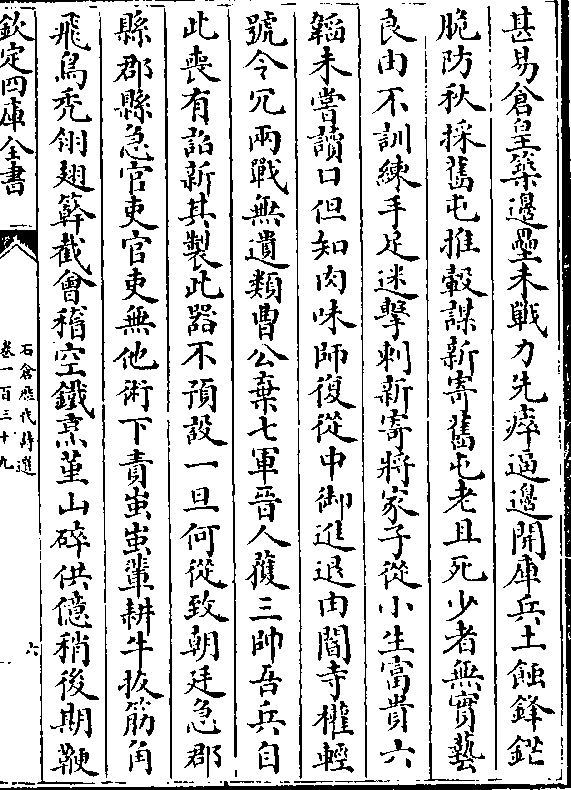 甚易倉皇築邊壘未戰力先瘁逼邊開庫兵土蝕鋒鋩
脆防秋採舊屯推轂謀新寄舊屯老且死少者無實藝
良由不訓練手足迷擊刺新寄將家子從小生富貴六
韜未嘗讀口但知肉味師復從中御進退由閽寺權輕
號令冗兩戰無遺類曹公棄七軍晉人獲三帥吾兵自
此喪有詔新其製此器不預設一旦何從致朝廷急郡
縣郡縣急官吏官吏無他術下責蚩蚩輩耕牛拔筋角
飛鳥禿翎翅簳截會稽空鐵烹堇山碎供億稍後期鞭
欽定四庫全書
石倉歷代詩選
卷一百三十九
六